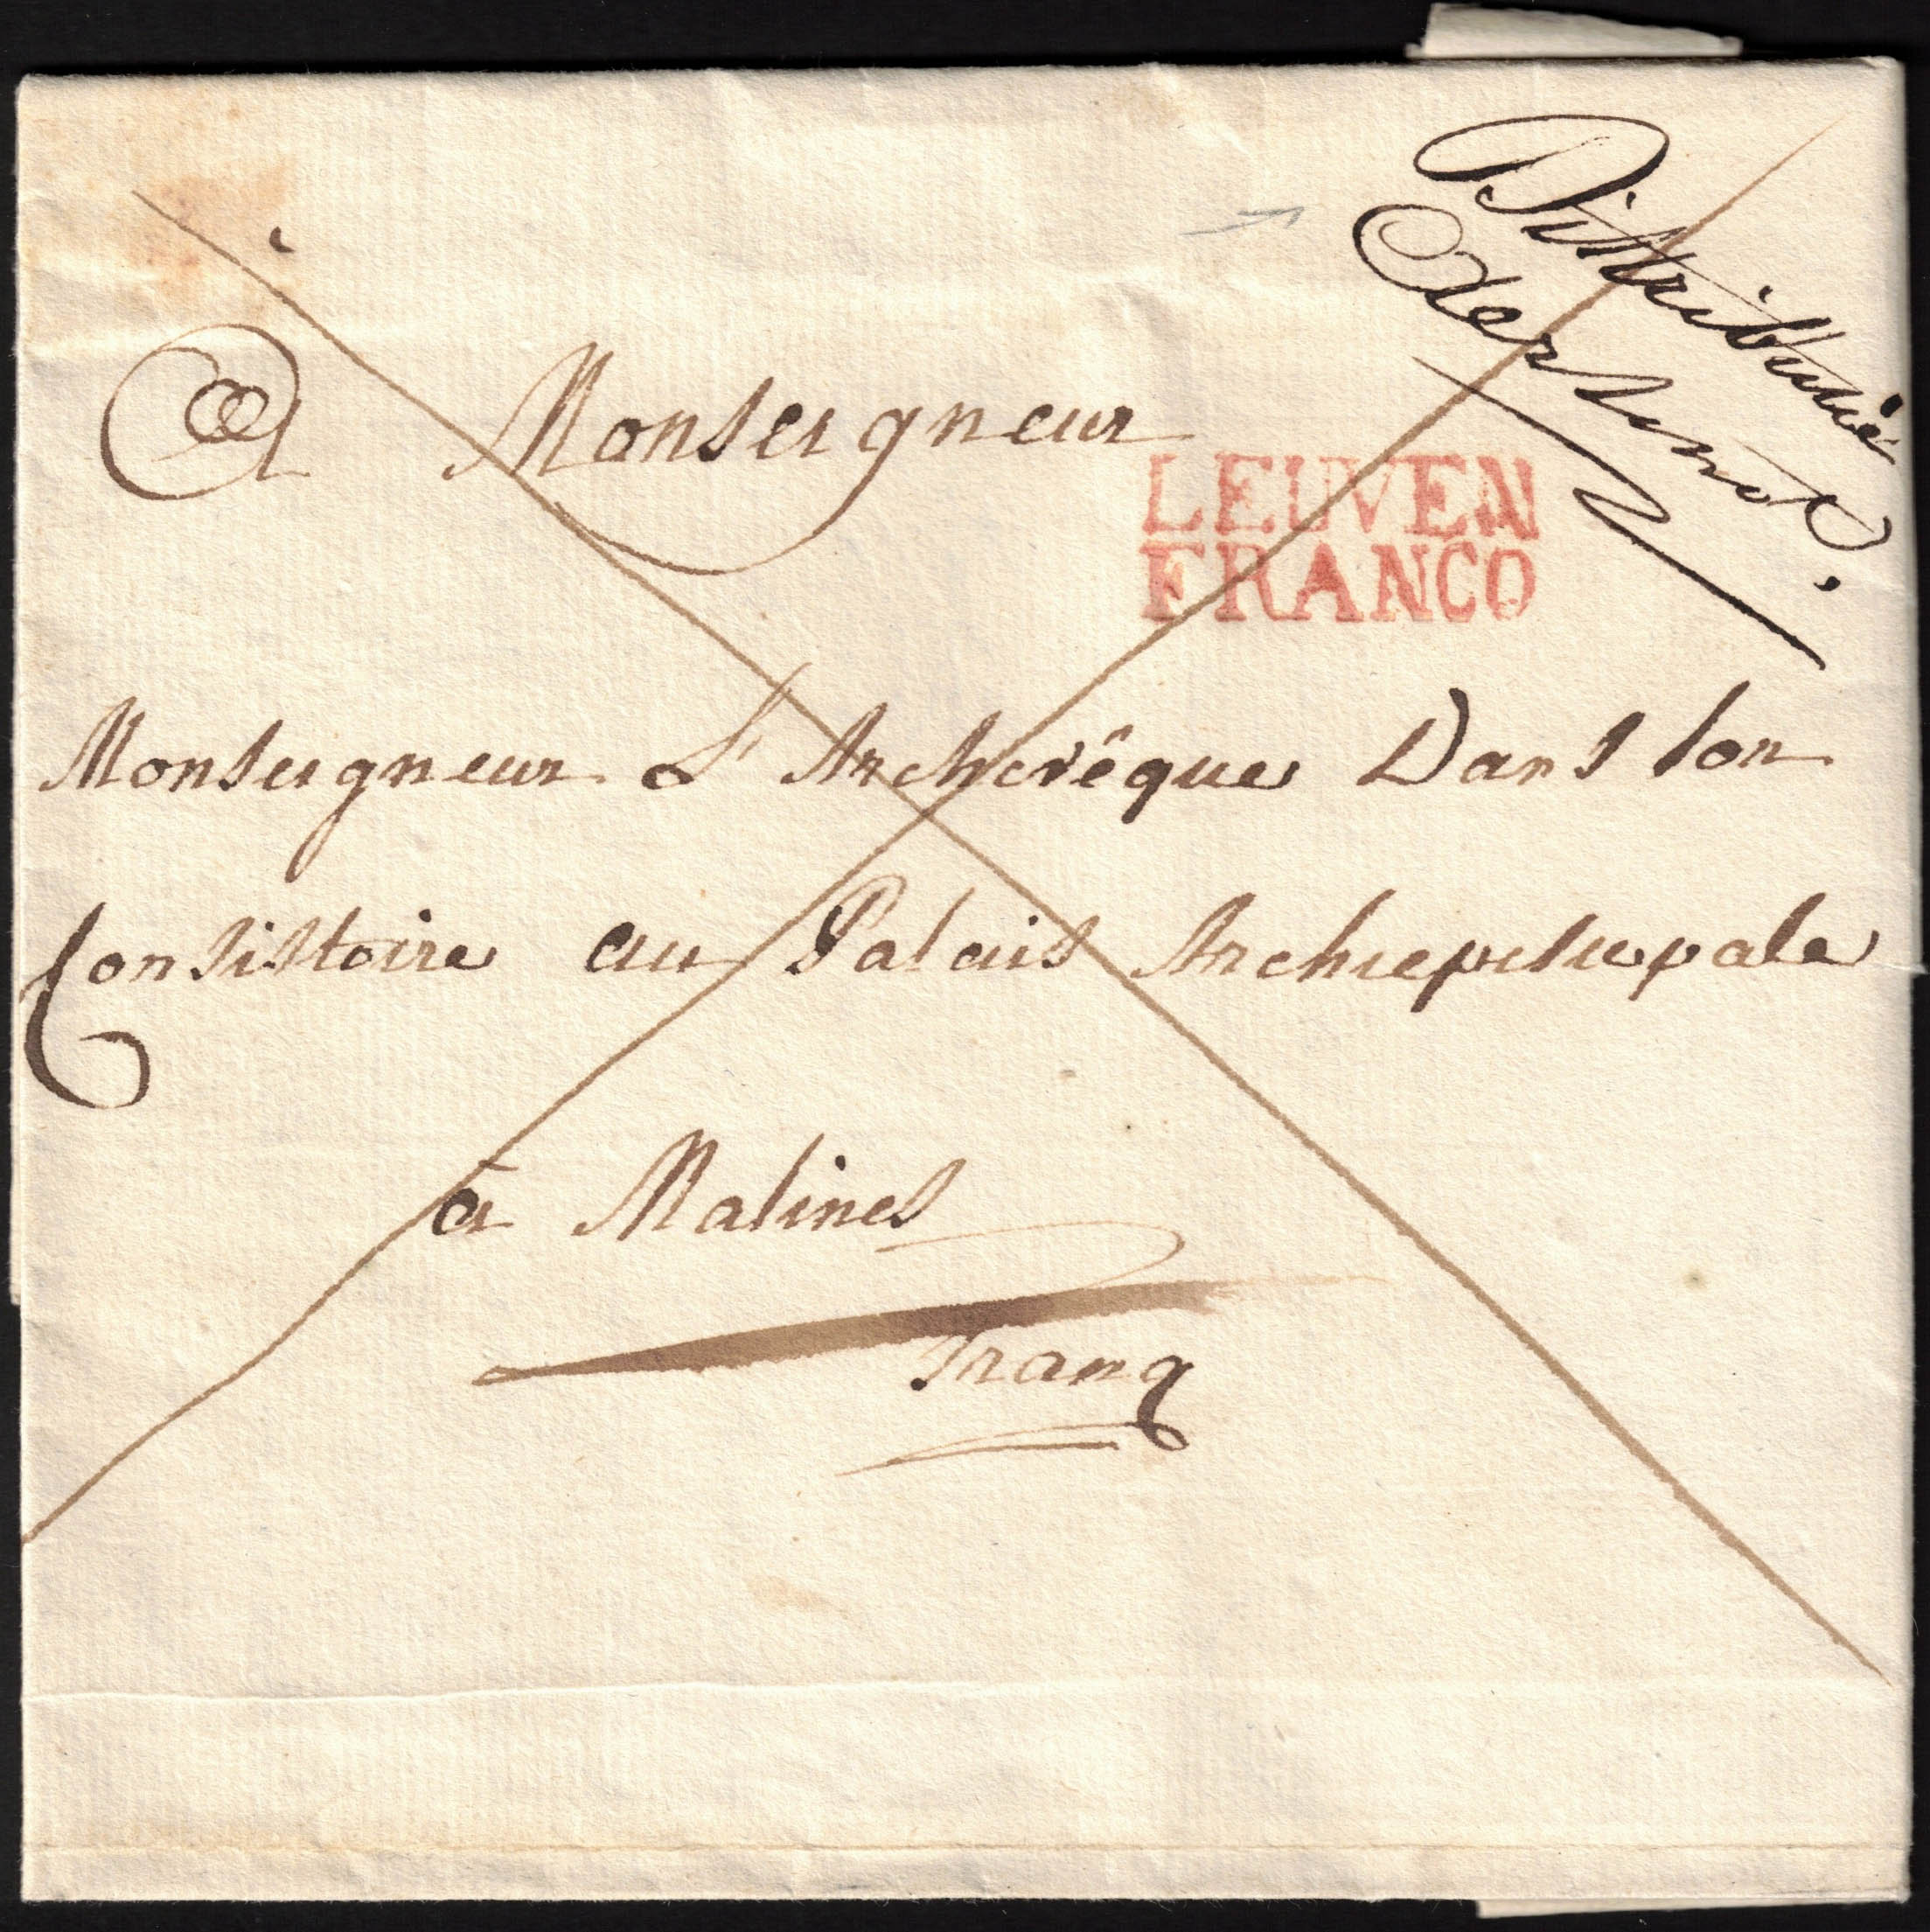 Distribuué
Aerschot.
A Monseigneur
LEUVEN
FRANCO
Monseigneur L'Archevêque Dans son
Consistoire au Palais Archiepiscopale
à Malines
franq